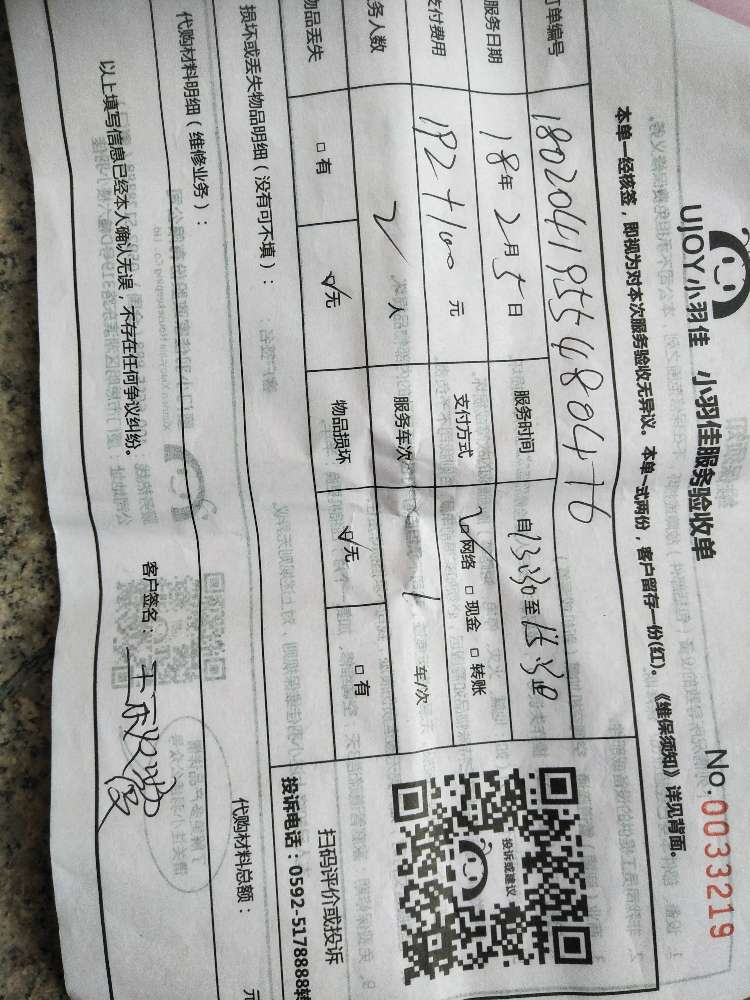 UJOY小羽佳 小羽佳服务验收单
No.0033219
本单一经核签，即视为对本次服务验收无异议。本单一式两份，客户留存一份(红)。《维保须知》详见背面。
订单编号 18020419554804476
服务日期 18年2月5日 服务时间 自13:30至15:30止
支付费用 192+100元 支付方式 ☑网络 □现金 □转账
务人数 2人 服务车次 1 车/次
物品丢失 □有 ☑无 物品损坏 ☑无 □有
投诉或建议
扫码评价或投诉
投诉电话：0592-5178888转
损坏或丢失物品明细（没有可不填）：
代购材料明细（维修业务）：
代购材料总额： 元
以上填写信息已经本人确认无误，不存在任何争议纠纷。
客户签名：